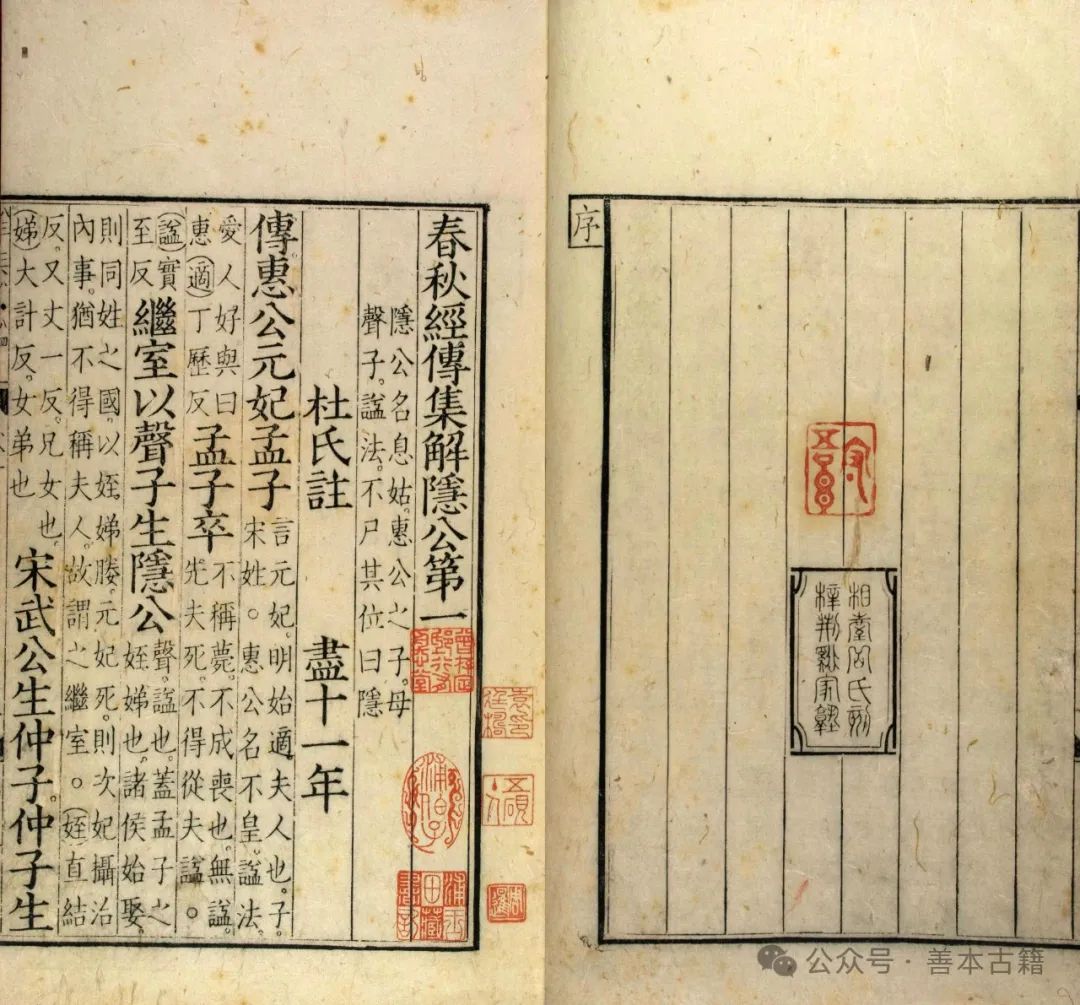 序
相臺岳氏刻
梓荊谿家塾
春秋經傳集解隱公第一
隱公名息姑。惠公之子。母
聲子。謚法。不尸其位曰隱
杜氏註 盡十一年
傳惠公元妃孟子言元妃。明始適夫人也。子。宋姓。惠公名不皇。謚法。
愛人好與曰惠適丁歷反孟子卒不稱薨。不成喪也。無謚。先夫死。不得從夫謚。
謚實至反繼室以聲子生隱公聲。謚也。蓋孟子之姪娣也。諸侯始娶。
則同姓之國。以姪娣媵。元妃死。則次妃攝治
內事。猶不得稱夫人。故謂之繼室。姪直結
反。又丈一反。兄女也。娣大計反。女弟也宋武公生仲子。仲子生
公众号 · 善本古籍